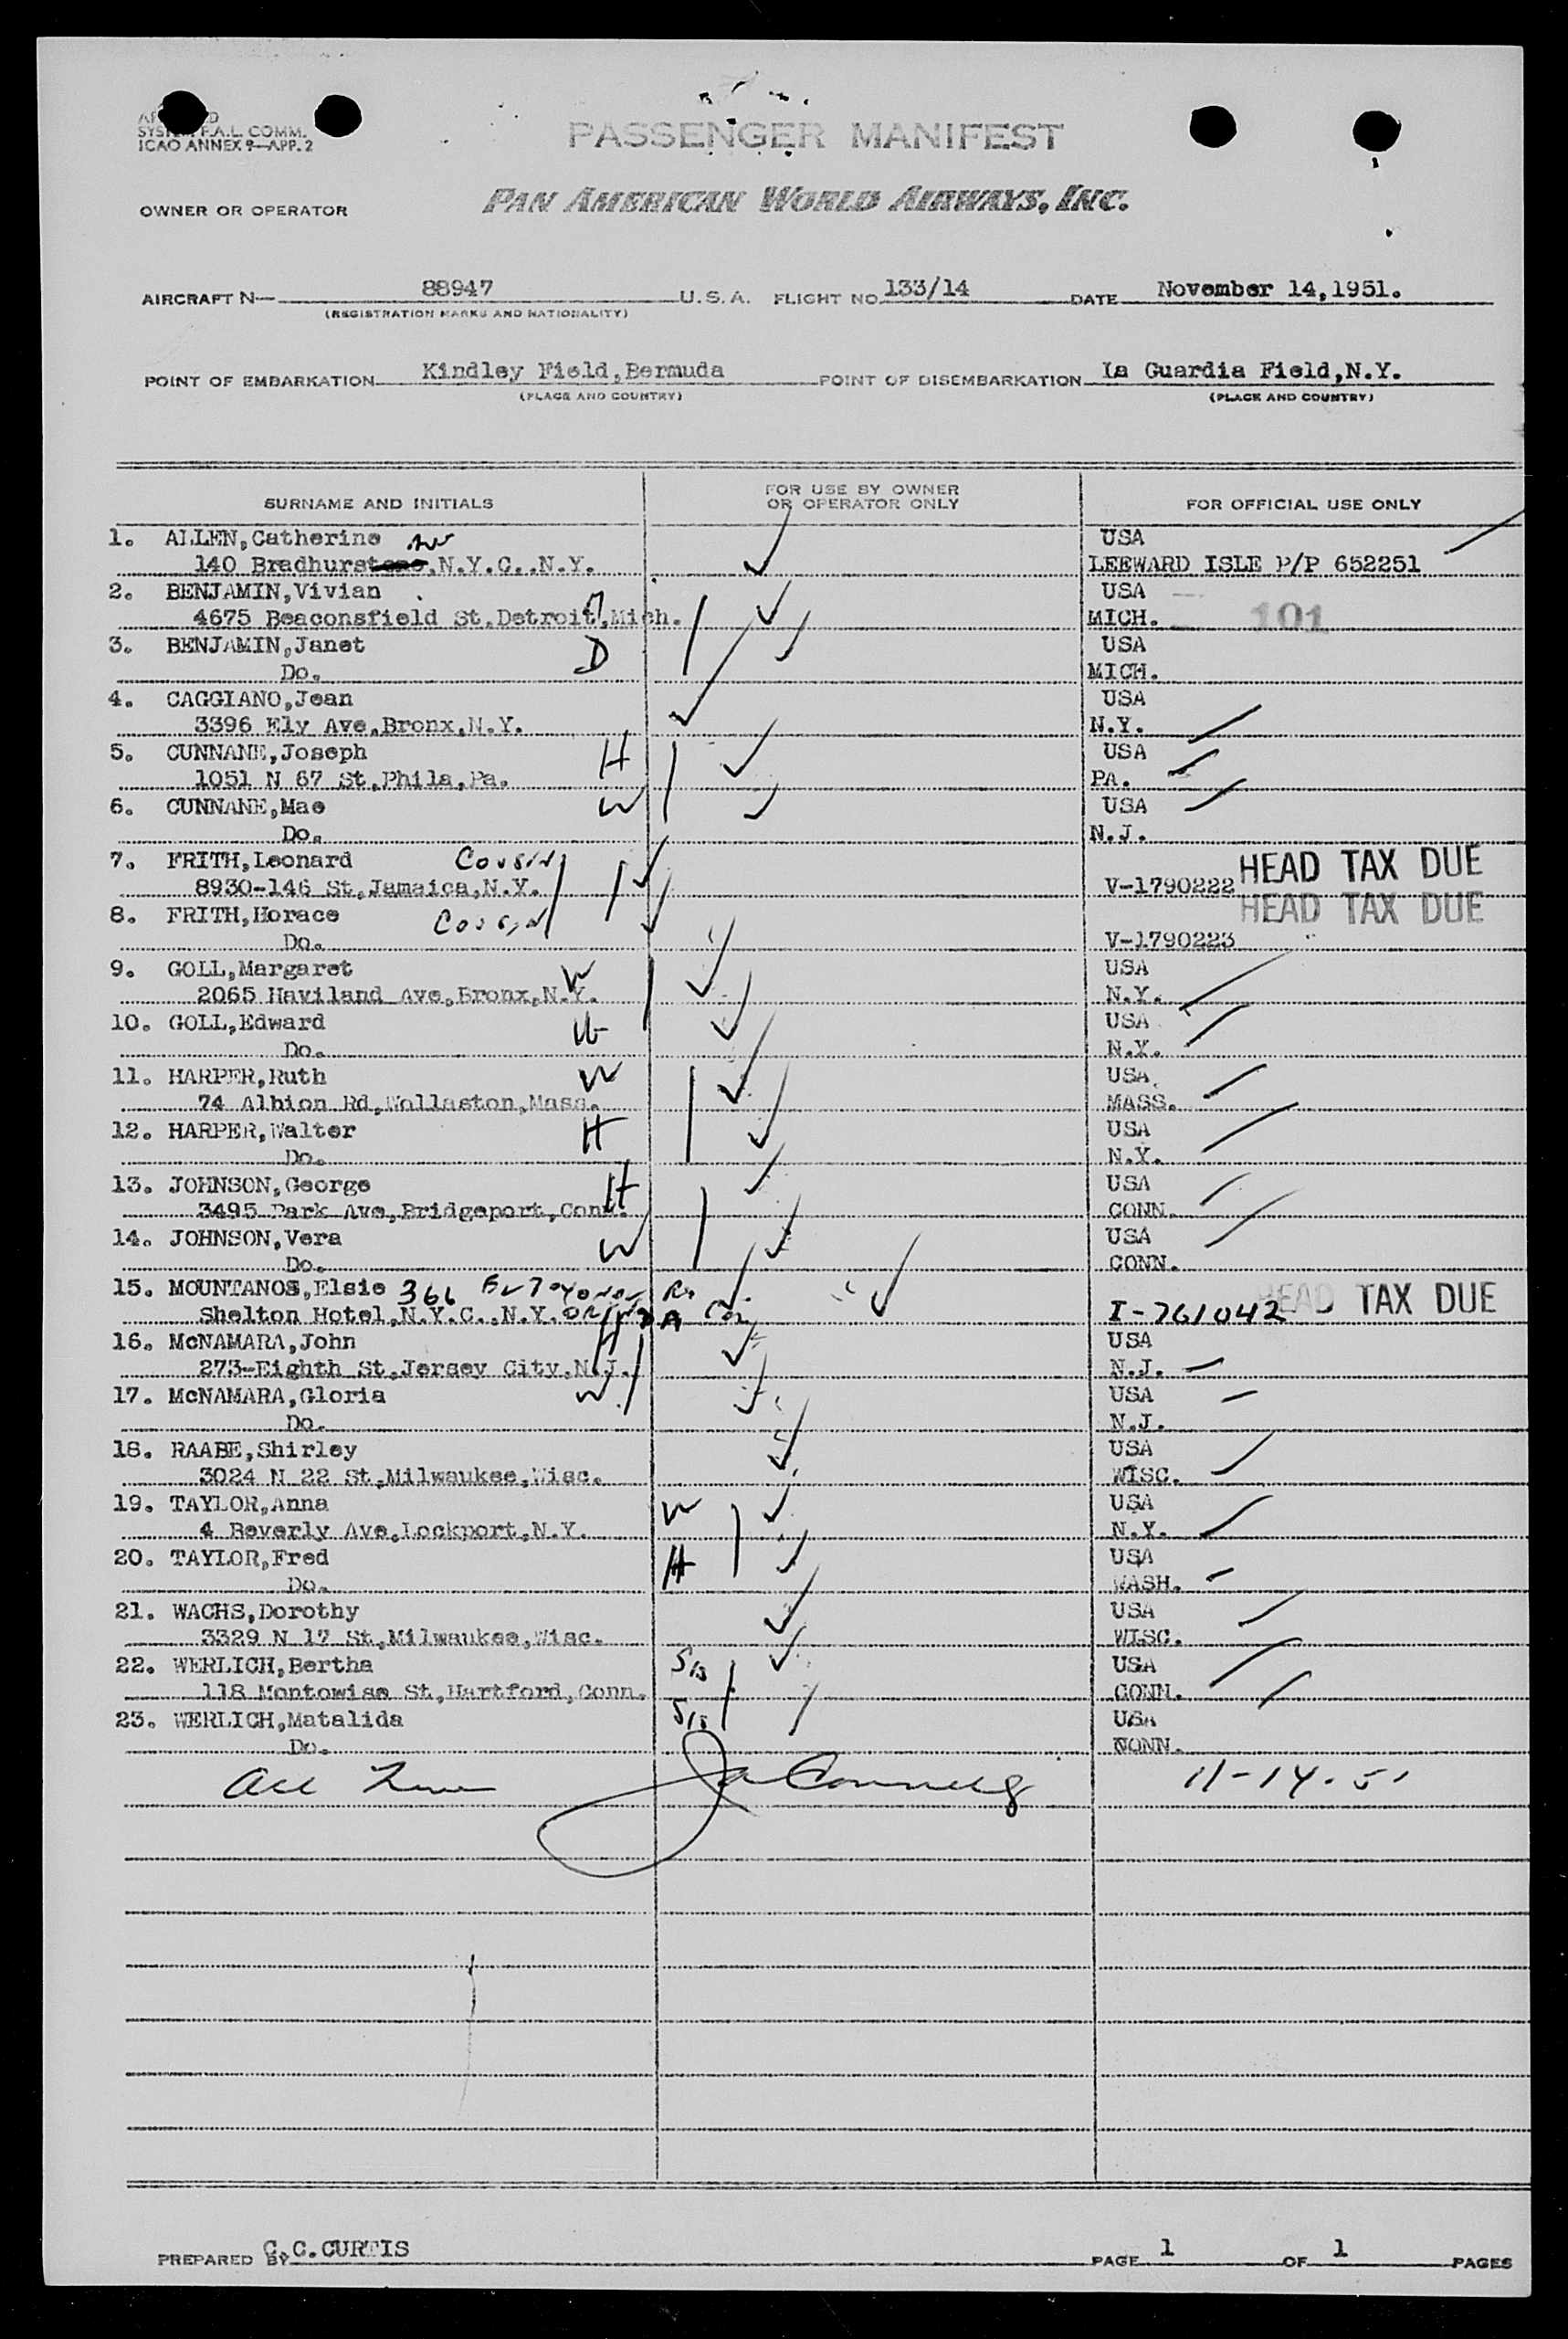 SYSTEM F.A.L. COMM.
ICAO ANNEX 9—APP. 2
PASSENGER MANIFEST
OWNER OR OPERATOR
PAN AMERICAN WORLD AIRWAYS, INC.
AIRCRAFT N— 88947 U.S.A. FLIGHT NO. 133/14 DATE November 14,1951.
(REGISTRATION MARKS AND NATIONALITY)
POINT OF EMBARKATION Kindley Field,Bermuda POINT OF DISEMBARKATION La Guardia Field,N.Y.
(PLACE AND COUNTRY) (PLACE AND COUNTRY)
SURNAME AND INITIALS FOR USE BY OWNER OR OPERATOR ONLY FOR OFFICIAL USE ONLY
1. ALLEN,Catherine USA
140 Bradhurst Av,N.Y.C.,N.Y. LEEWARD ISLE P/P 652251
2. BENJAMIN,Vivian USA
4675 Beaconsfield St,Detroit,Mich. MICH. 101
3. BENJAMIN,Janet D USA
Do. MICH.
4. CAGGIANO,Jean USA
3396 Ely Ave,Bronx,N.Y. N.Y.
5. CUNNANE,Joseph H USA
1051 N 67 St,Phila,Pa. PA.
6. CUNNANE,Mae W USA
Do. N.J.
7. FRITH,Leonard Cousin HEAD TAX DUE
8930-146 St,Jamaica,N.Y. V-1790222
8. FRITH,Horace Cousin HEAD TAX DUE
Do. V-1790223
9. GOLL,Margaret W USA
2065 Haviland Ave,Bronx,N.Y. N.Y.
10. GOLL,Edward H USA
Do. N.Y.
11. HARPER,Ruth W USA
74 Albion Rd,Wollaston,Mass. MASS.
12. HARPER,Walter H USA
Do. N.Y.
13. JOHNSON,George H USA
3495 Park Ave,Bridgeport,Conn. CONN.
14. JOHNSON,Vera W USA
Do. CONN.
15. MOUNTANOS,Elsie 366 HEAD TAX DUE
Shelton Hotel,N.Y.C.,N.Y. I-761042
16. McNAMARA,John H USA
273-Eighth St,Jersey City,N.J. N.J.
17. McNAMARA,Gloria W USA
Do. N.J.
18. RAABE,Shirley USA
3024 N 22 St,Milwaukee,Wisc. WISC.
19. TAYLOR,Anna W USA
4 Beverly Ave,Lockport,N.Y. N.Y.
20. TAYLOR,Fred H USA
Do. WASH.
21. WACHS,Dorothy USA
3329 N 17 St,Milwaukee,Wisc. WISC.
22. WERLICH,Bertha Sis USA
118 Montowise St,Hartford,Conn. CONN.
23. WERLICH,Matalida Sis USA
Do. CONN.
11-14-51
PREPARED BY C.C.CURTIS PAGE 1 OF 1 PAGES